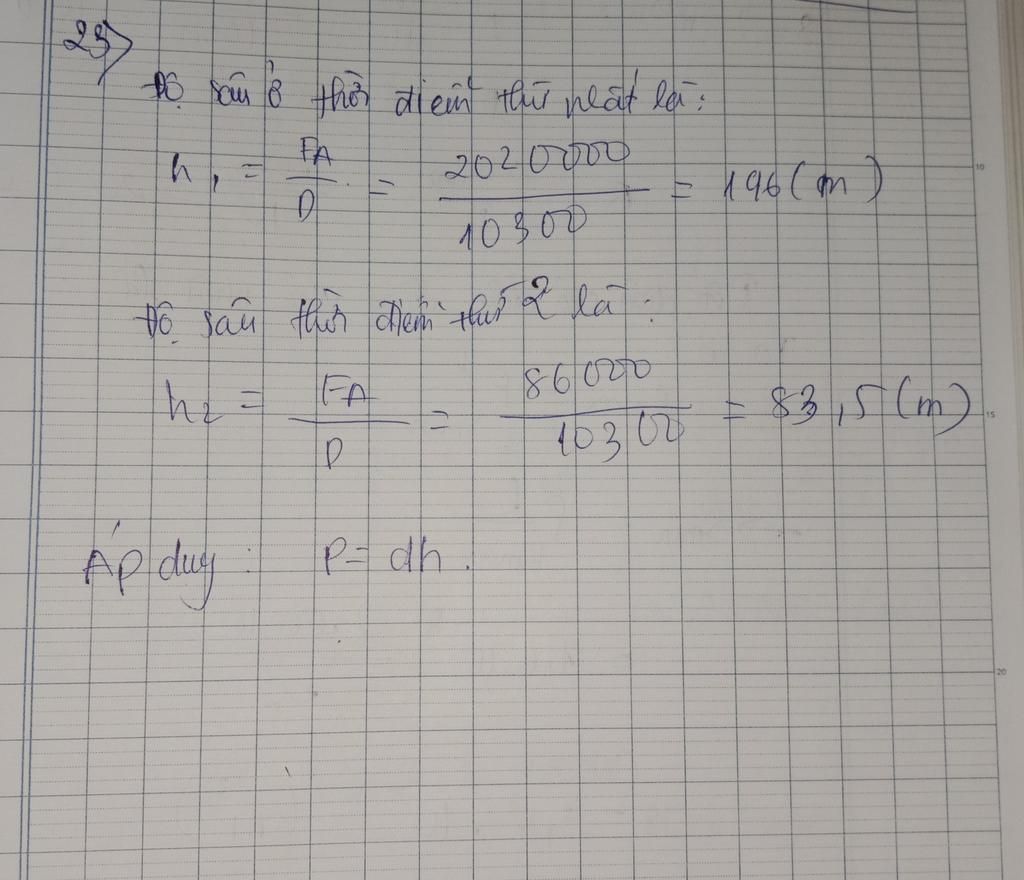 23)
Độ sâu ở thời điểm thứ nhất là:
h₁ = FA/D = 2020000/10300 = 196 (m)
Độ sâu thời điểm thứ 2 là:
h₂ = FA/D = 86000/10300 = 83,5 (m)
Áp duy: P = dh.
10
15
20